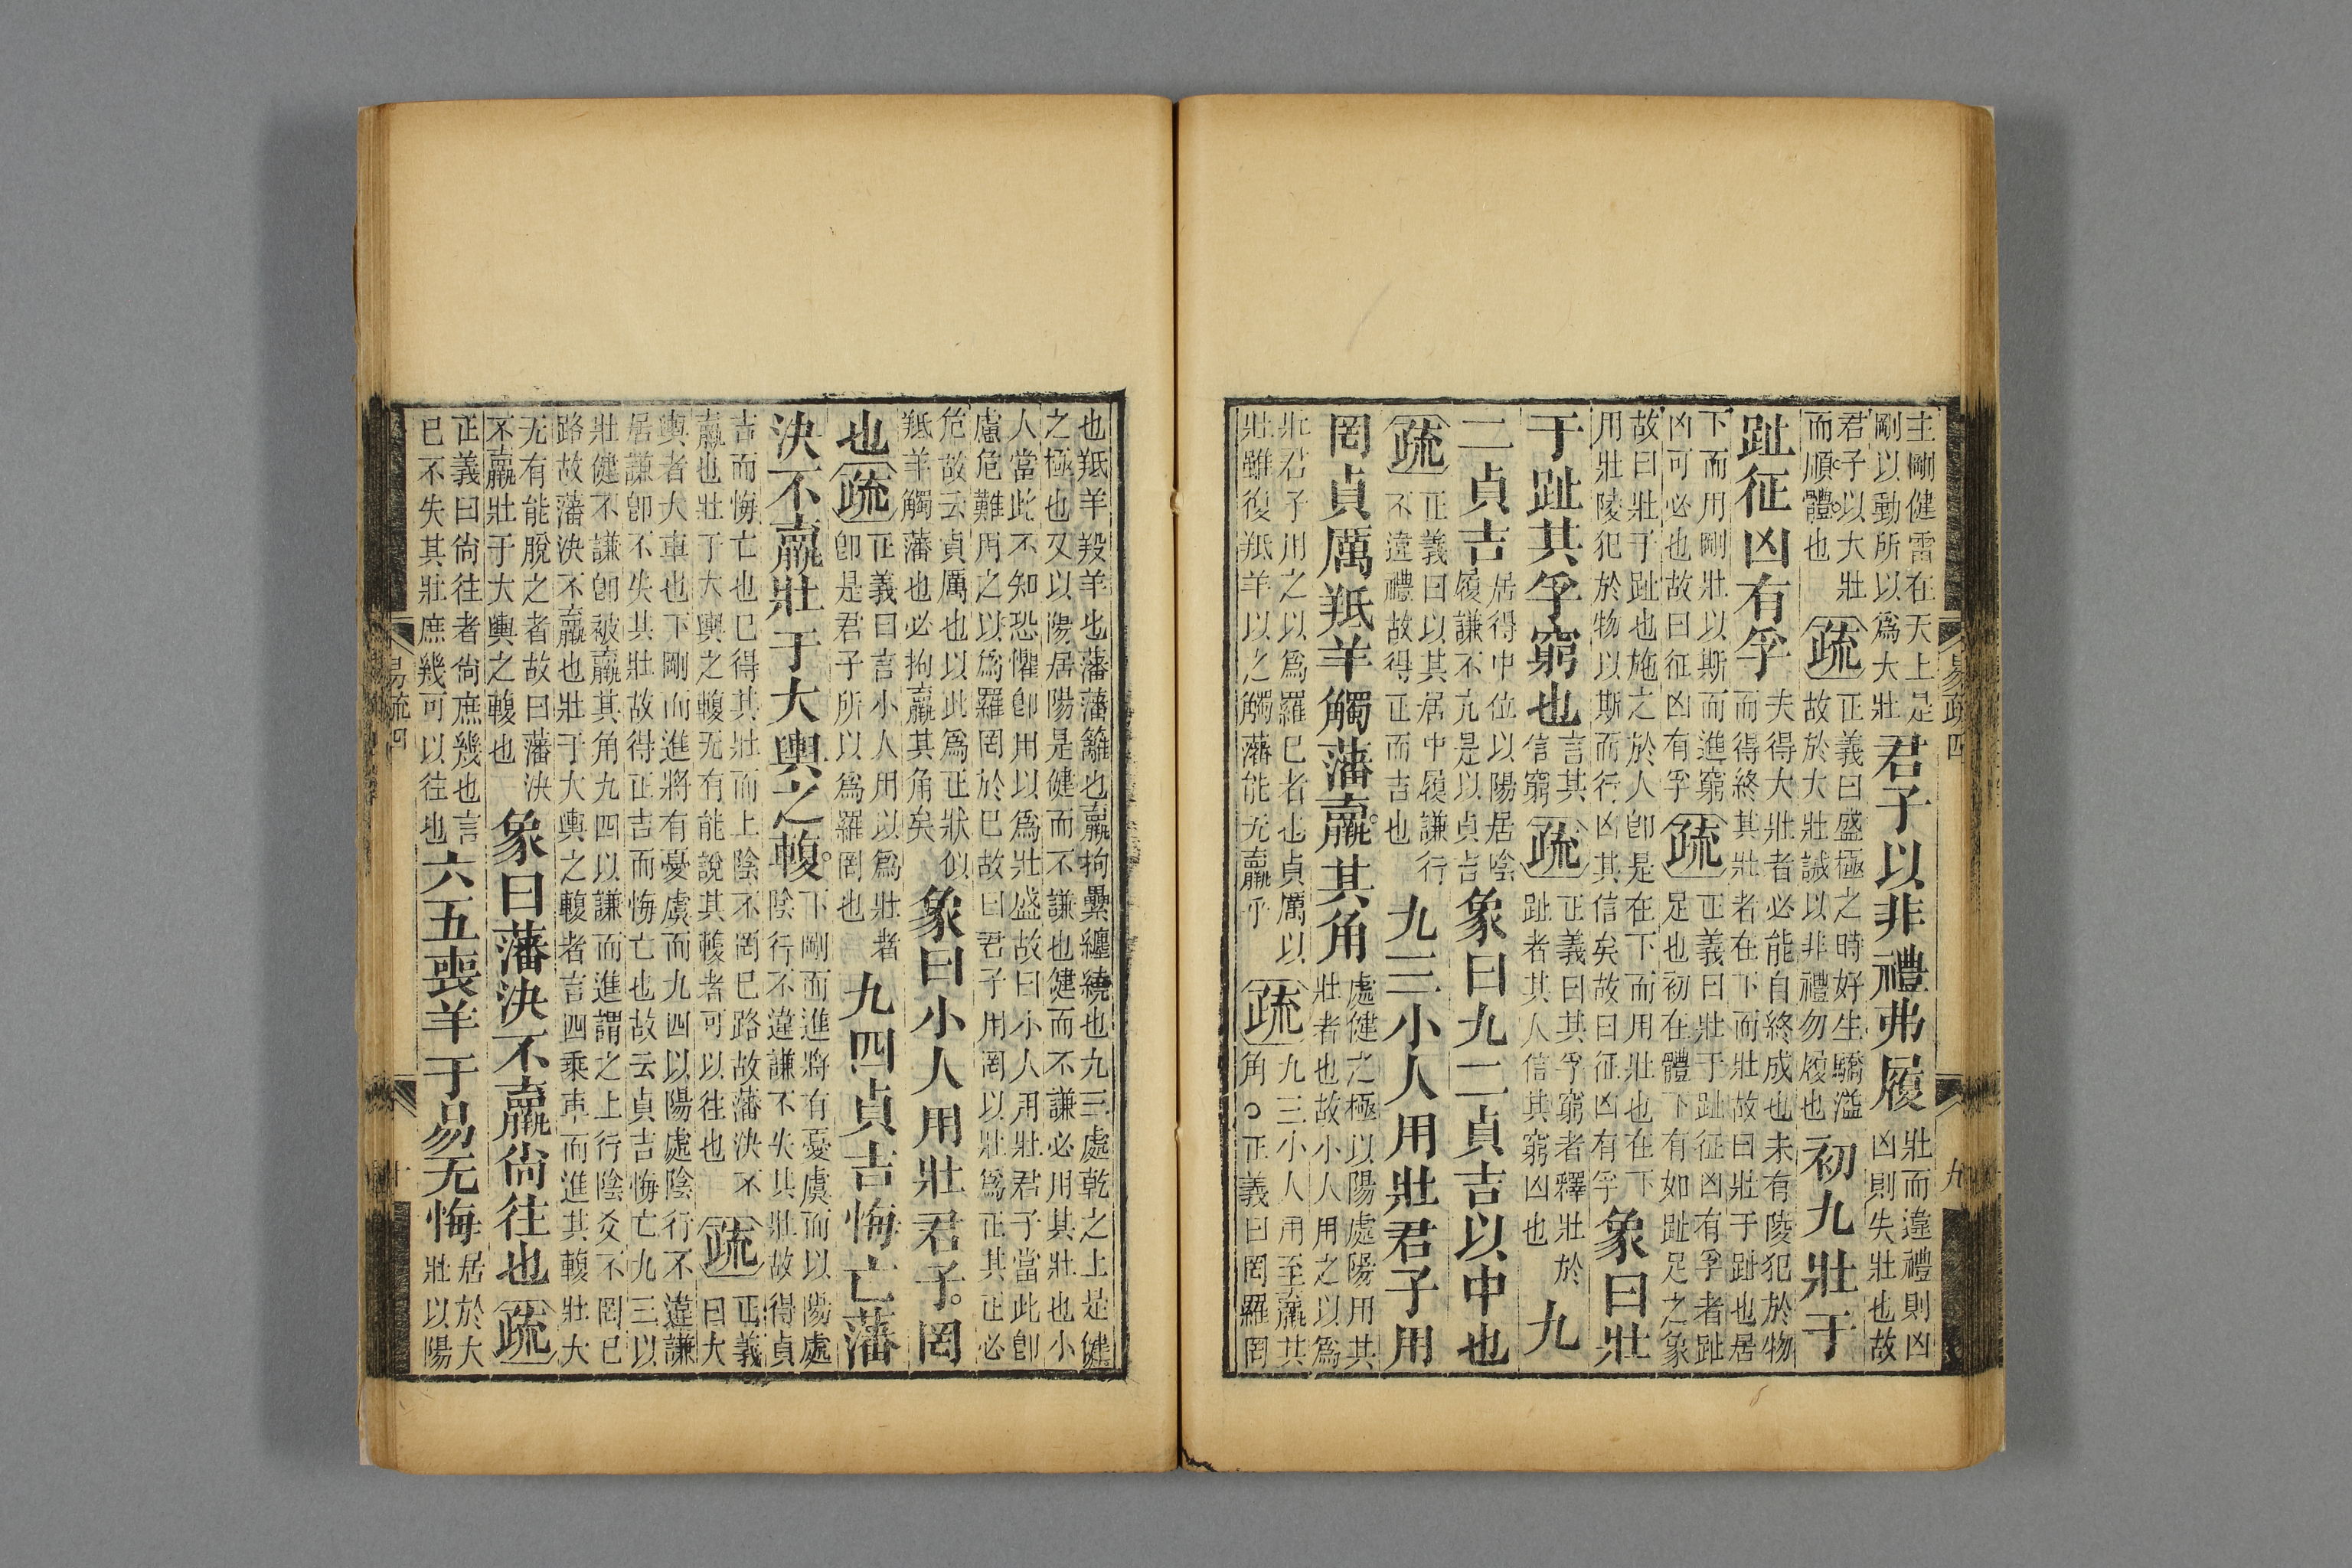 主剛健雷在天上是
剛以動所以爲大壯
君子以非禮弗履
壯而違禮則凶
凶則失壯也故
君子以大壯
而順體也
疏
正義曰盛極之時好生驕溢
故於大壯誡以非禮勿履也
初九壯于
趾征凶有孚
夫得大壯者必能自終成也未有陵犯於物
而得終其壯者在下而壯故曰壯于趾也居
下而用剛壯以斯而進窮
凶可必也故曰征凶有孚
疏
正義曰壯于趾征凶有孚者趾
足也初在體下有如趾足之象
故曰壯于趾也施之於人卽是在下而用壯也在下
用壯陵犯於物以斯而行凶其信矣故曰征凶有孚
象曰壯
于趾其孚窮也
言其
信窮
疏
正義曰其孚窮者釋壯於
趾者其人信其窮凶也
九
二貞吉
居得中位以陽居陰
履謙不亢是以貞吉
象曰九二貞吉以中也
疏
正義曰以其居中履謙行
不違禮故得正而吉也
九三小人用壯君子用
罔貞厲羝羊觸藩羸其角
處健之極以陽處陽用其
壯者也故小人用之以爲
壯君子用之以爲羅已者也貞厲以
壯雖復羝羊以之觸藩能无羸乎
疏
九三小人用至羸其
角。正義曰罔羅罔
易疏四
九
也羝羊羖羊也藩藩籬也羸拘纍纏繞也九三處乾之上是健
之極也又以陽居陽是健而不謙也健而不謙必用其壯也小
人當此不知恐懼卽用以爲壯盛故曰小人用壯君子當此卽
慮危難用之以爲羅罔於已故曰君子用罔以壯爲正其正必
危故云貞厲也以此爲正狀似
羝羊觸藩也必拘羸其角矣
象曰小人用壯君子罔
也
疏
正義曰言小人用以爲壯者
卽是君子所以爲羅罔也
九四貞吉悔亡藩
決不羸壯于大輿之輹
下剛而進將有憂虞而以陽處
陰行不違謙不失其壯故得貞
吉而悔亡也已得其壯而上陰不罔已路故藩決不
羸也壯于大輿之輹无有能說其輹者可以往也
疏
正義
曰大
輿者大車也下剛而進將有憂虞而九四以陽處陰行不違謙
居謙卽不失其壯故得正吉而悔亡也故云貞吉悔亡九三以
壯健不謙卽被羸其角九四以謙而進謂之上行陰爻不罔已
路故藩決不羸也壯于大輿之輹者言四乘車而進其輹壯大
无有能脫之者故曰藩決
不羸壯于大輿之輹也
象曰藩決不羸尚往也
疏
正義曰尚往者尚庶幾也言
已不失其壯庶幾可以往也
六五喪羊于易无悔
居於大
壯以陽
易疏四